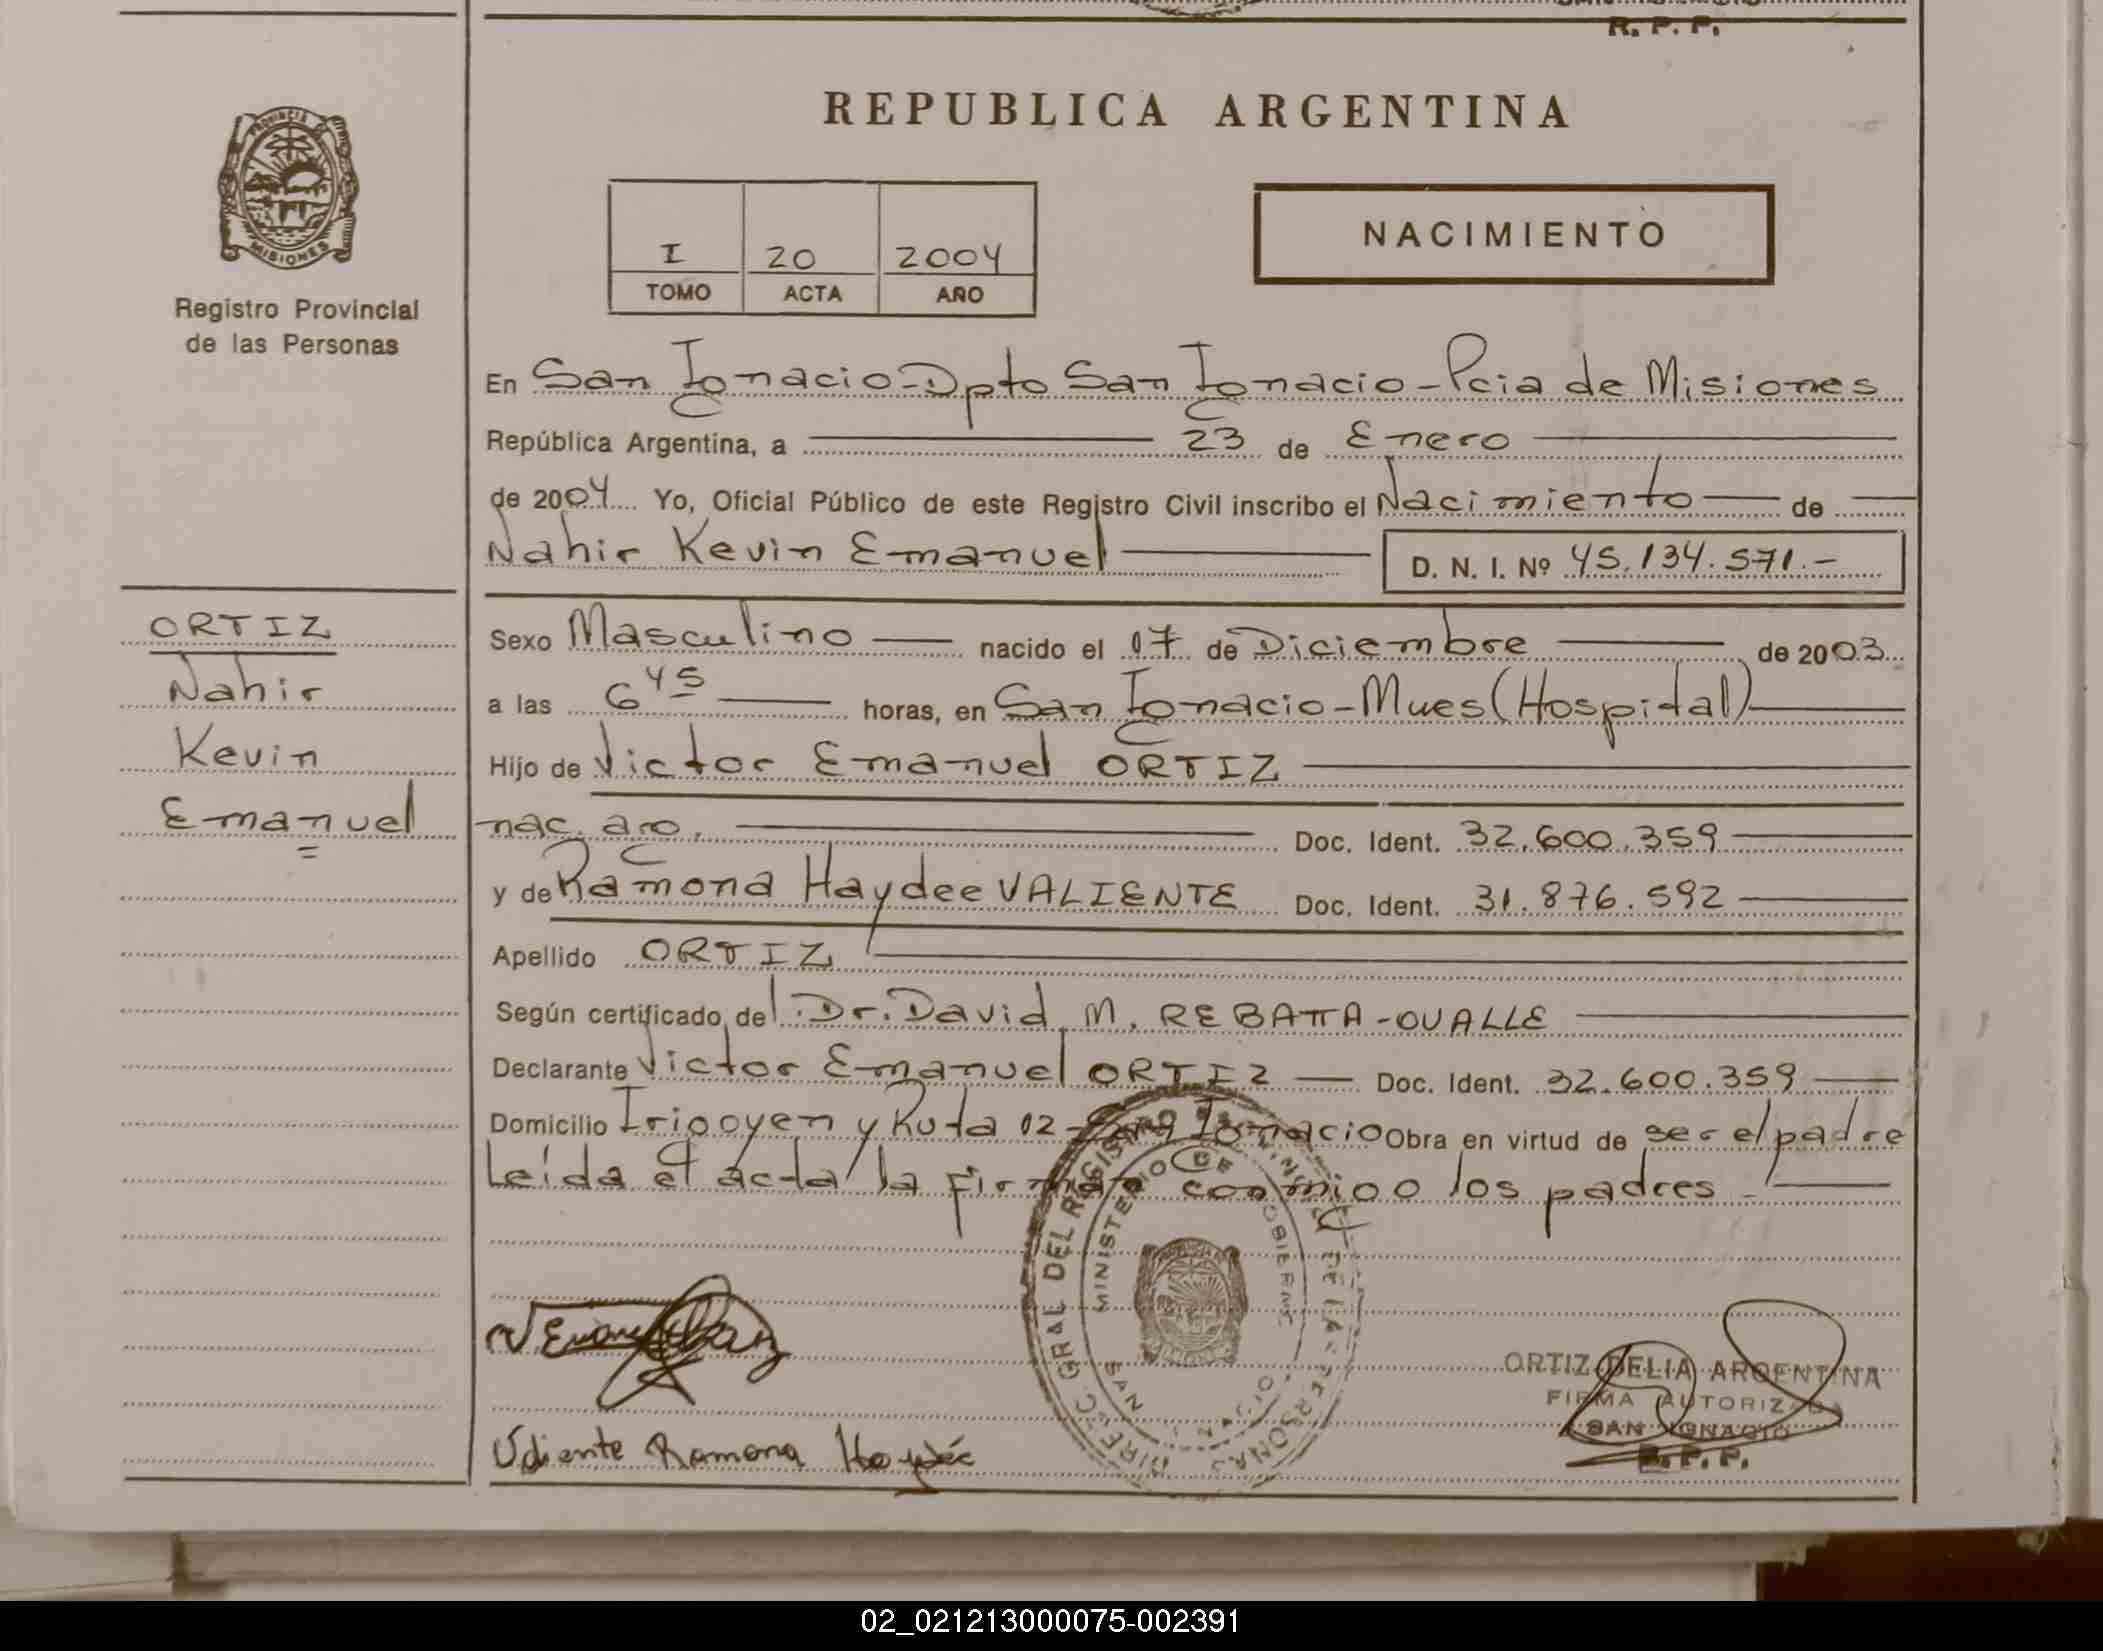 R. P. P.
REPUBLICA ARGENTINA
PROVINCIA DE MISIONES
Registro Provincial
de las Personas
I 20 2004
TOMO ACTA AÑO
NACIMIENTO
En San Ignacio-Dpto San Ignacio-Pcia de Misiones
República Argentina, a 23 de Enero
de 2004 Yo, Oficial Público de este Registro Civil inscribo el Nacimiento de
Nahir Kevin Emanuel D. N. I. Nº 45.134.571.-
ORTIZ
Nahir
Kevin
Emanuel
Sexo Masculino nacido el 07 de Diciembre de 2003
a las 6 45 horas, en San Ignacio-Mnes (Hospital)
Hijo de Victor Emanuel ORTIZ
nac. arg. Doc. Ident. 32.600.359
y de Ramona Haydee VALIENTE Doc. Ident. 31.876.592
Apellido ORTIZ
Según certificado de l Dr. David M. REBATTA-OVALLE
Declarante Victor Emanuel ORTIZ Doc. Ident. 32.600.359
Domicilio Irigoyen y Ruta 12 - San Ignacio Obra en virtud de ser el padre
Leída el acta la firman conmigo los padres.
DIRECC. GRAL DEL REGISTRO PROVINCIAL DE LAS PERSONAS
MINISTERIO DE GOBIERNO
SAN IGNACIO
Valiente Ramona Haydée
ORTIZ DELIA ARGENTINA
FIRMA AUTORIZADA
SAN IGNACIO
R. P. P.
02_021213000075-002391